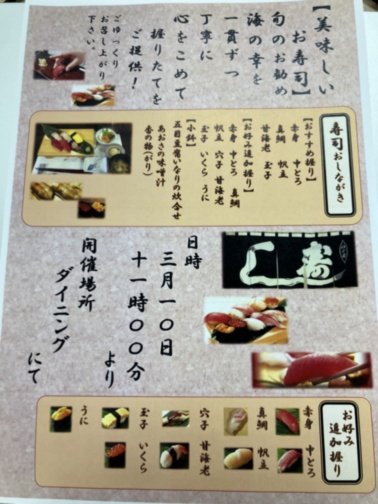 【美味しい
お寿司】
旬のお勧め
海の幸を
一貫ずつ
丁寧に
心をこめて
握りたてを
ご提供!
ごゆっくり
お召し上がり
下さい。
寿司おしながき
【おすすめ握り】
赤身 中とろ
真鯛 帆立
甘海老 玉子
【お好み追加握り】
赤身 中とろ 真鯛
帆立 穴子 甘海老
玉子 いくら うに
【小鉢】
五目豆腐いなりの炊合せ
あおさの味噌汁
香の物(がり)
寿し
日時
三月一〇日
十一時〇〇分
より
開催場所
ダイニング
にて
お好み
追加握り
赤身 中とろ
真鯛 帆立
穴子 甘海老
玉子 いくら
うに